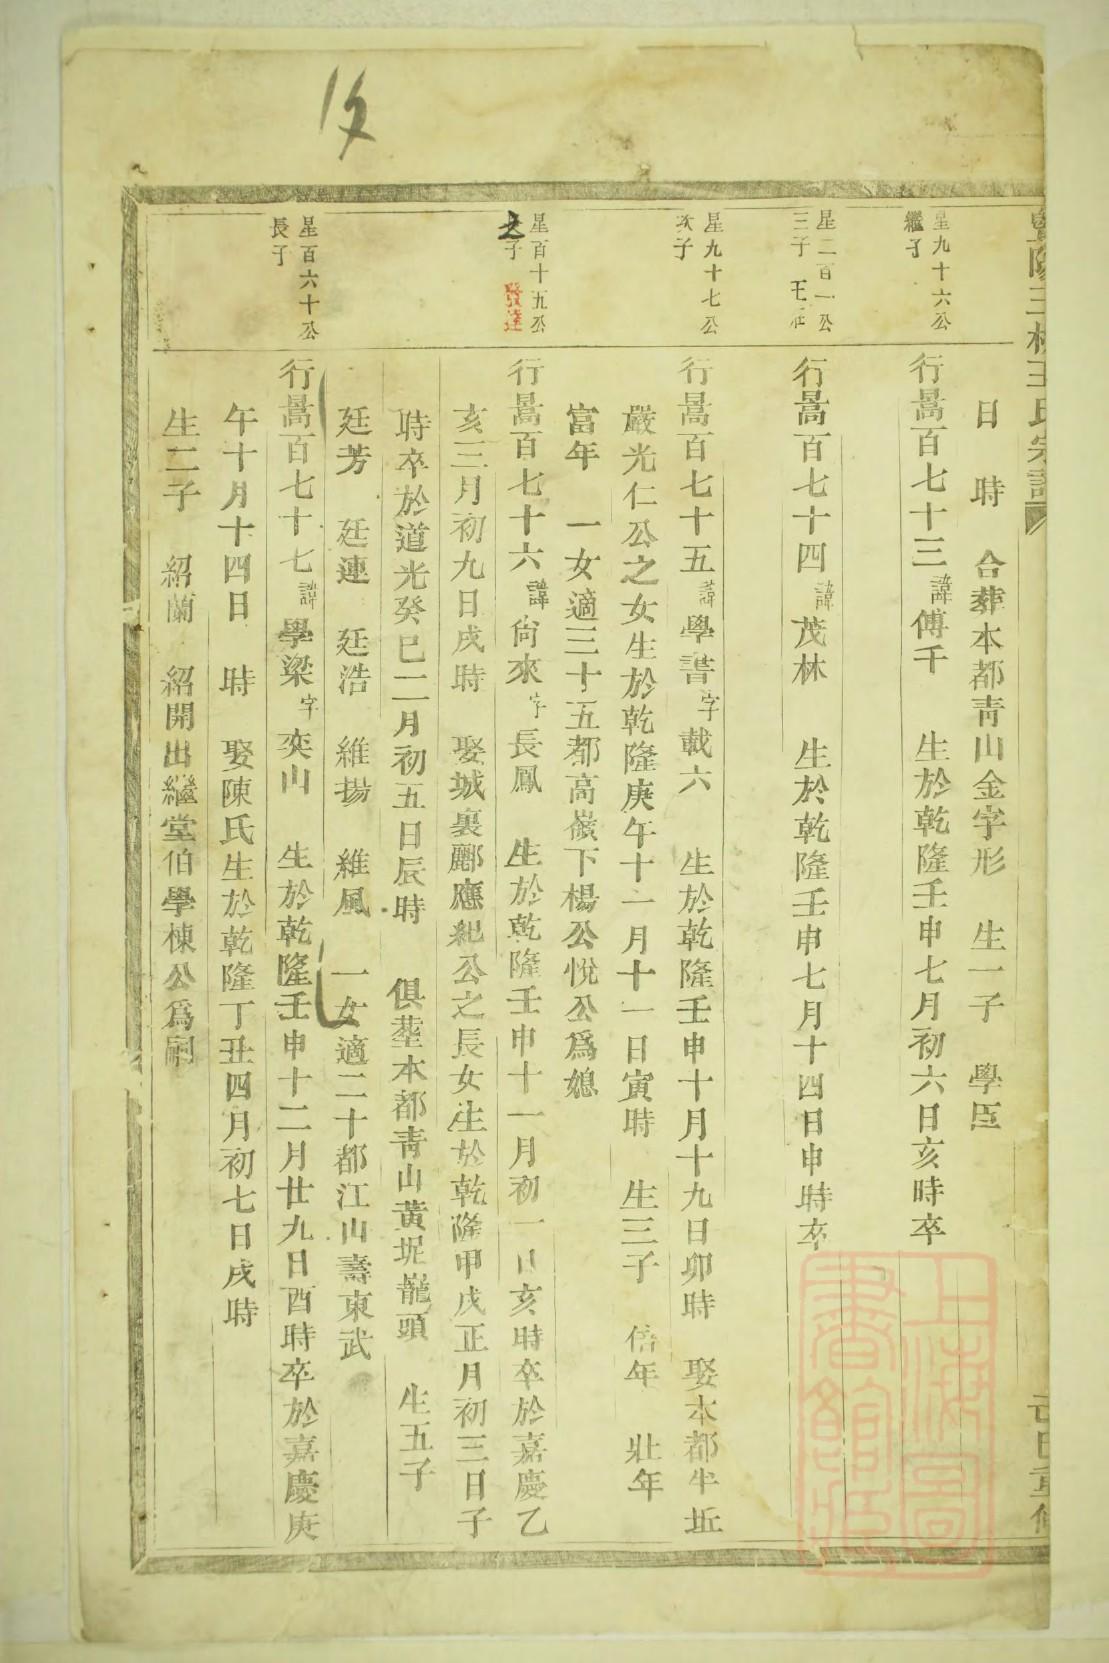 日 時 合葬本都靑山金字形 生一子 學臣
星九十六公
繼子
行暠百七十三諱傅千 生於乾隆壬申七月初六日亥時卒
星二百一公
三子
行暠百七十四諱茂林 生於乾隆壬申七月十四日申時卒
星九十七公
次子
行暠百七十五諱學書字載六 生於乾隆壬申十月十九日卯時 娶本都半坵
嚴光仁公之女生於乾隆庚午十一月十一日寅時 生三子 倍年 壯年
富年 一女適三十五都高嶺下楊公悅公爲媳
星百十五公
子 發達
行暠百七十六諱尙來字長鳳 生於乾隆壬申十一月初一日亥時卒於嘉慶乙
亥三月初九日戌時 娶城裏酈應紀公之長女生於乾隆甲戌正月初三日子
時卒於道光癸巳二月初五日辰時 俱塟本都靑山黃坭巃頭 生五子
廷芳 廷連 廷浩 維揚 維風 一女適二十都江山壽東武
星百六十公
長子
行暠百七十七諱學梁字奕山 生於乾隆壬申十二月廿九日酉時卒於嘉慶庚
午十月十四日 時 娶陳氏生於乾隆丁丑四月初七日戌時
生二子 紹蘭 紹開出繼堂伯學棟公爲嗣
上海圖書館藏